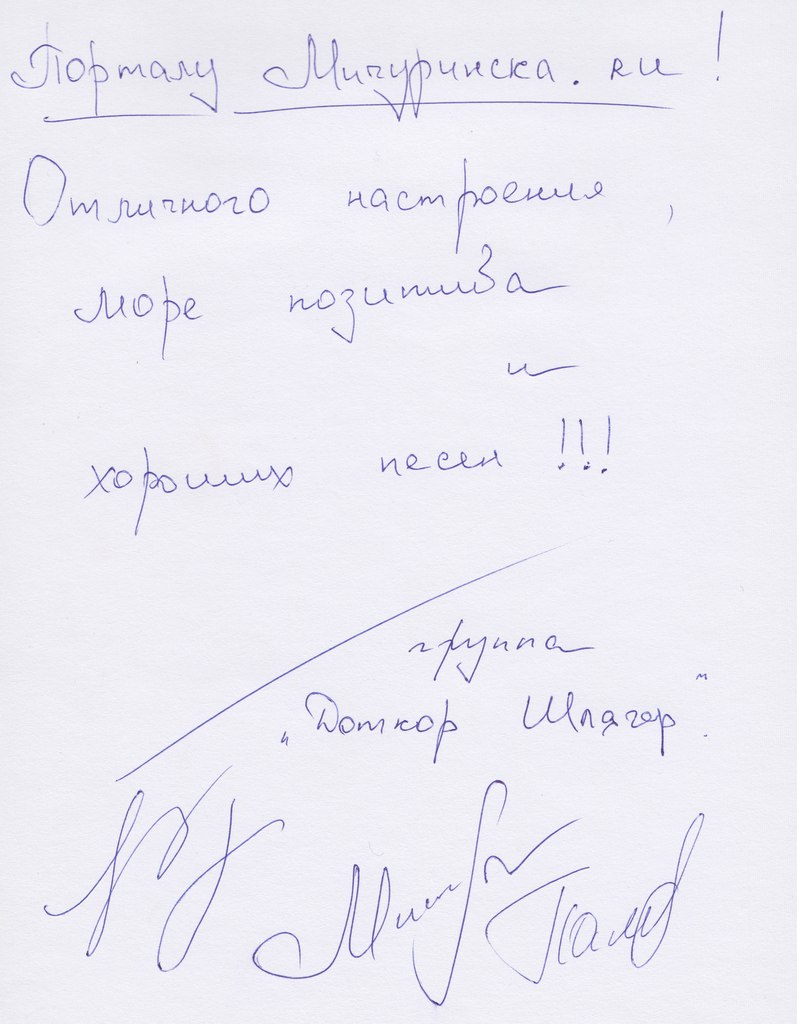 Порталу Мичуринска.ru!
Отличного настроения,
море позитива
и
хороших песен !!!
группа
„Доткор Шлягер".